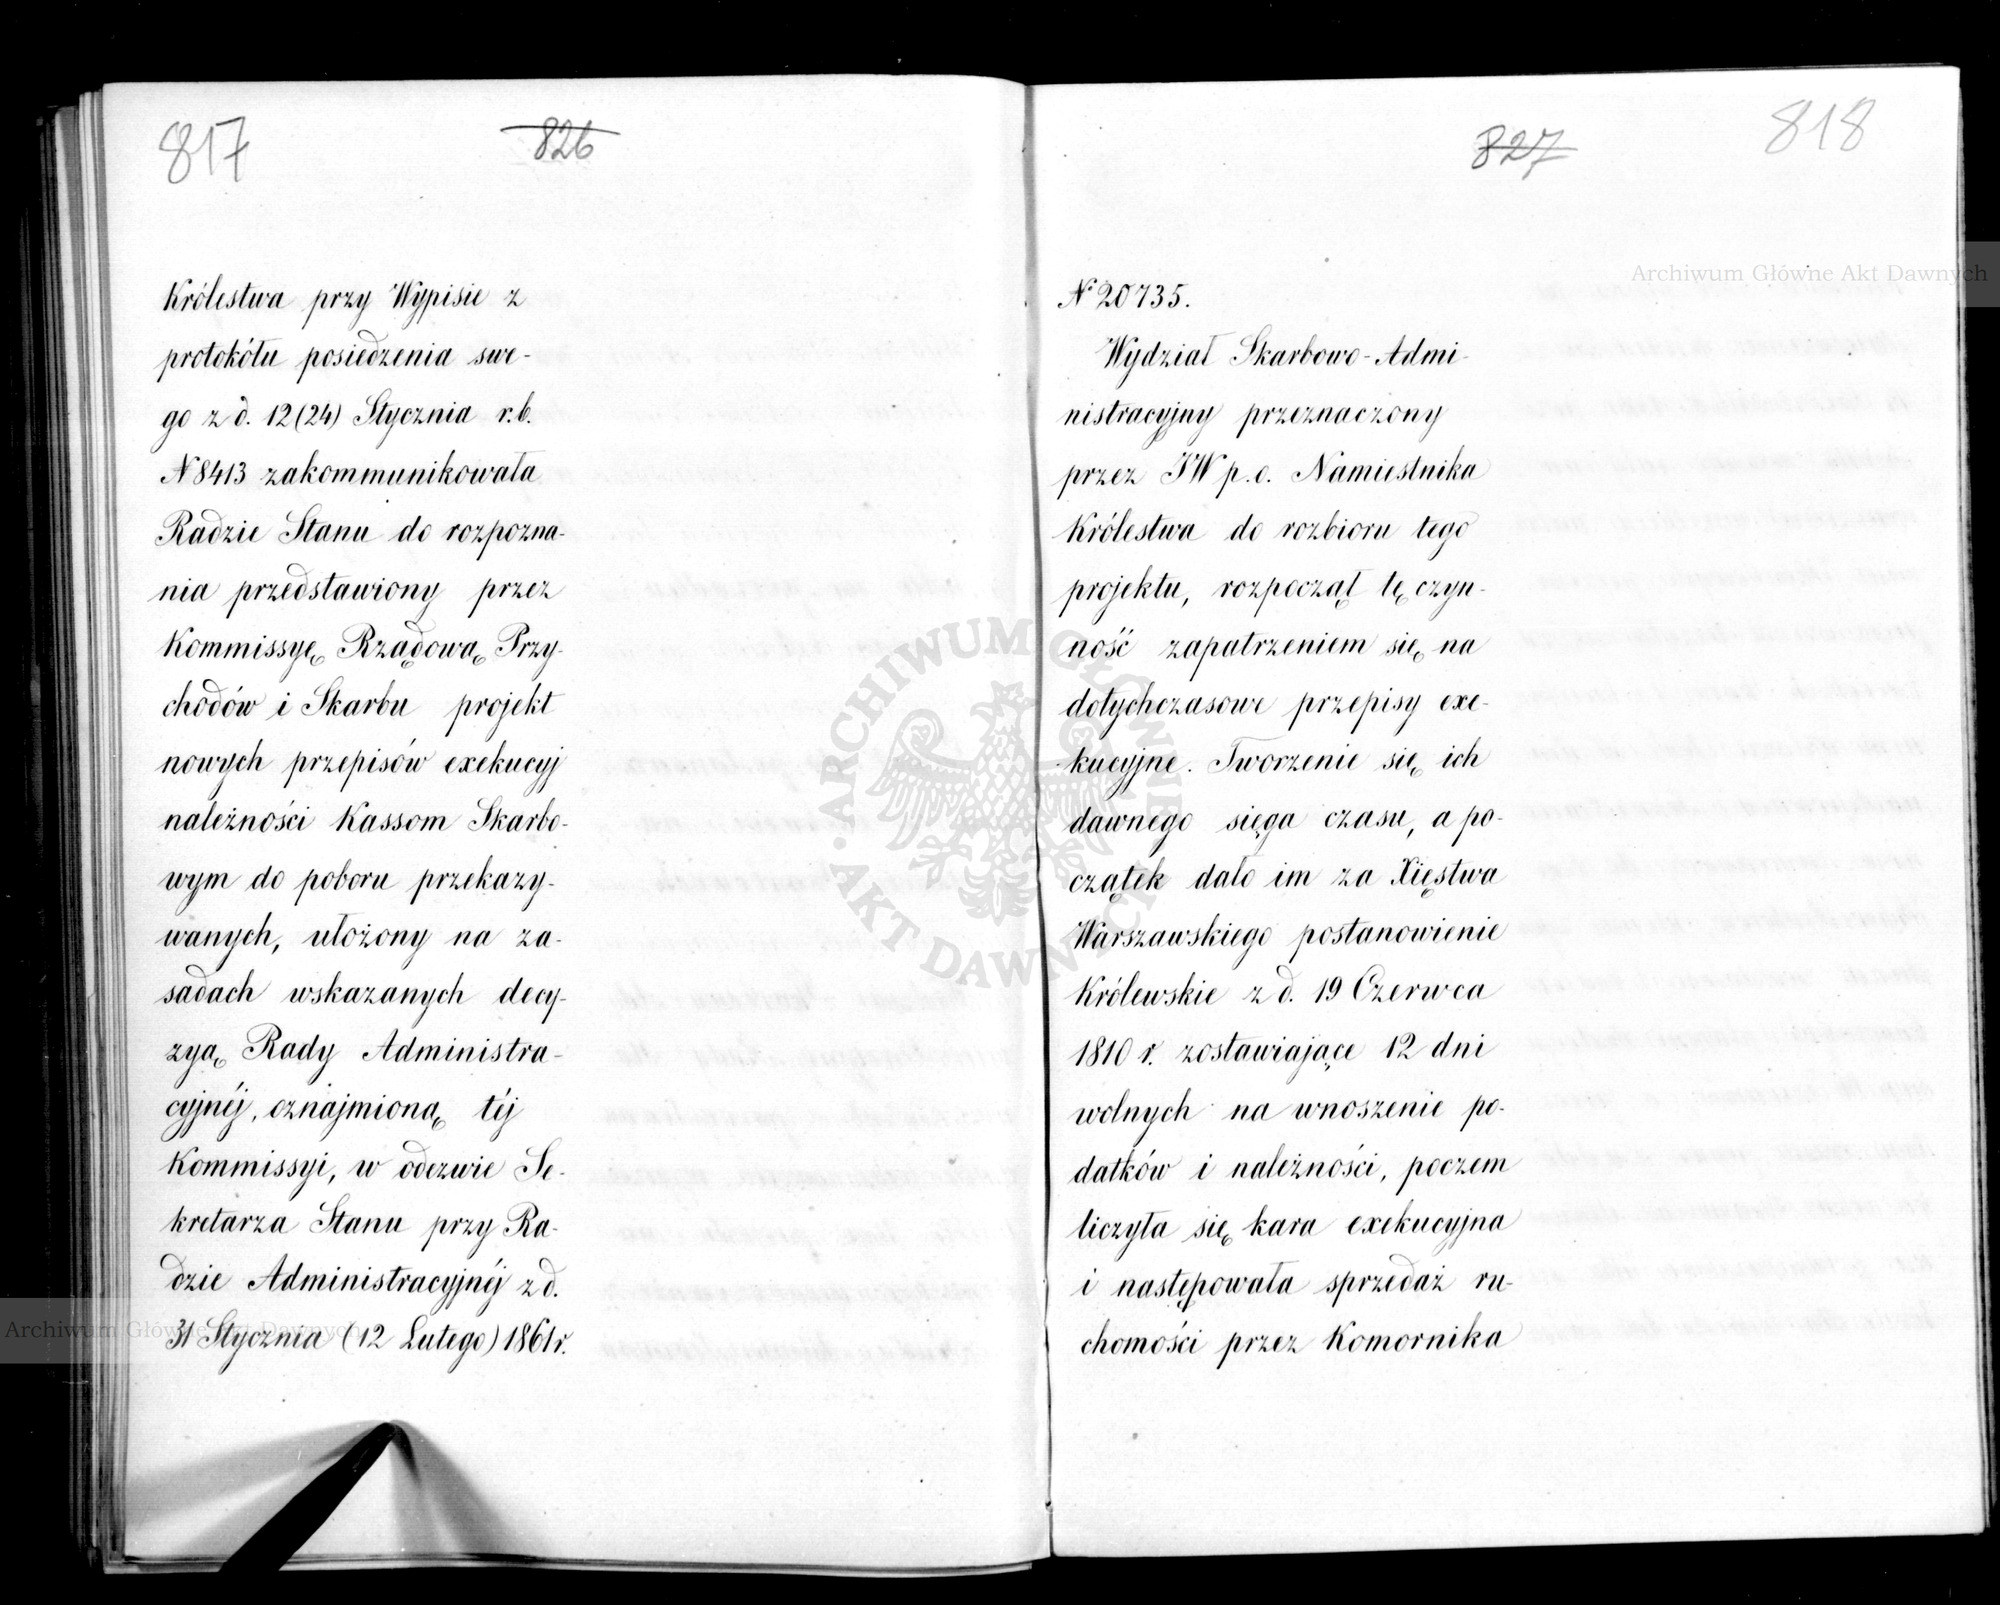 817
826
Królestwa przy Wypisie z
protokółu posiedzenia swe-
go z d. 12 (24) Stycznia r. b.
N 8413 zakommunikowała
Radzie Stanu do rozpozna-
nia przedstawiony przez
Kommissyę Rządową Przy-
chodów i Skarbu projekt
nowych przepisów exekucyj
należności Kassom Skarbo-
wym do poboru przekazy-
wanych, ułożony na za-
sadach wskazanych decy-
zyą Rady Administra-
cyjnéj, oznajmioną téj
Kommissyi, w odezwie Se-
kretarza Stanu przy Ra-
dzie Administracyjnéj z d.
31 Stycznia (12 Lutego) 1861 r.
827
818
N 20735.
Wydział Skarbowo-Admi-
nistracyjny przeznaczony
przez JW p. o. Namiestnika
Królestwa do rozbioru tego
projektu, rozpoczął tę czyn-
ność zapatrzeniem się na
dotychczasowe przepisy exe-
kucyjne. Tworzenie się ich
dawnego sięga czasu, a po-
czątek dało im za Xięstwa
Warszawskiego postanowienie
Królewskie z d. 19 Czerwca
1810 r. zostawiające 12 dni
wolnych na wnoszenie po-
datków i należności, poczem
liczyła się kara exekucyjna
i następowała sprzedaż ru-
chomości przez Komornika
Archiwum Główne Akt Dawnych
Archiwum Główne Akt Dawnych
ARCHIWUM GŁÓWNE · AKT DAWNYCH ·